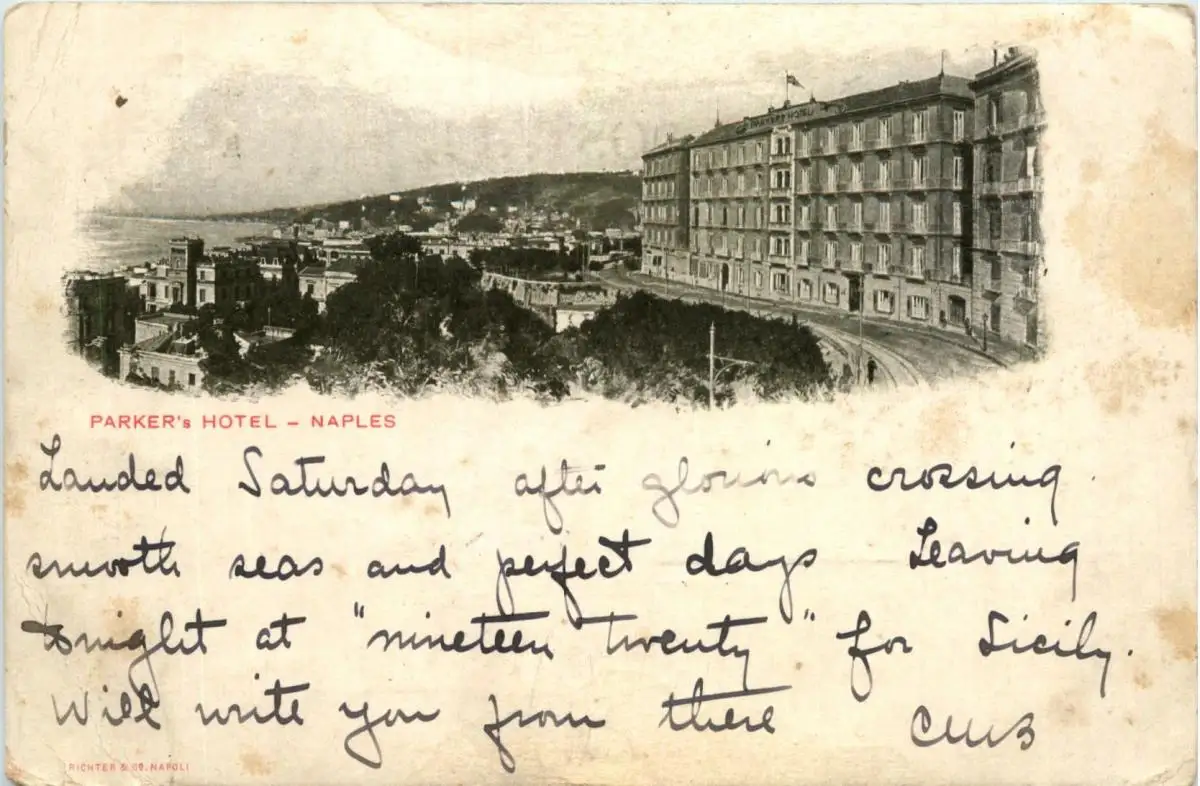 PARKER'S HOTEL
PARKER's HOTEL – NAPLES
Landed Saturday after glorious crossing.
smooth seas and perfect days Leaving
tonight at "nineteen twenty" for Sicily.
Will write you from there CWB
RICHTER & Cº. NAPOLI